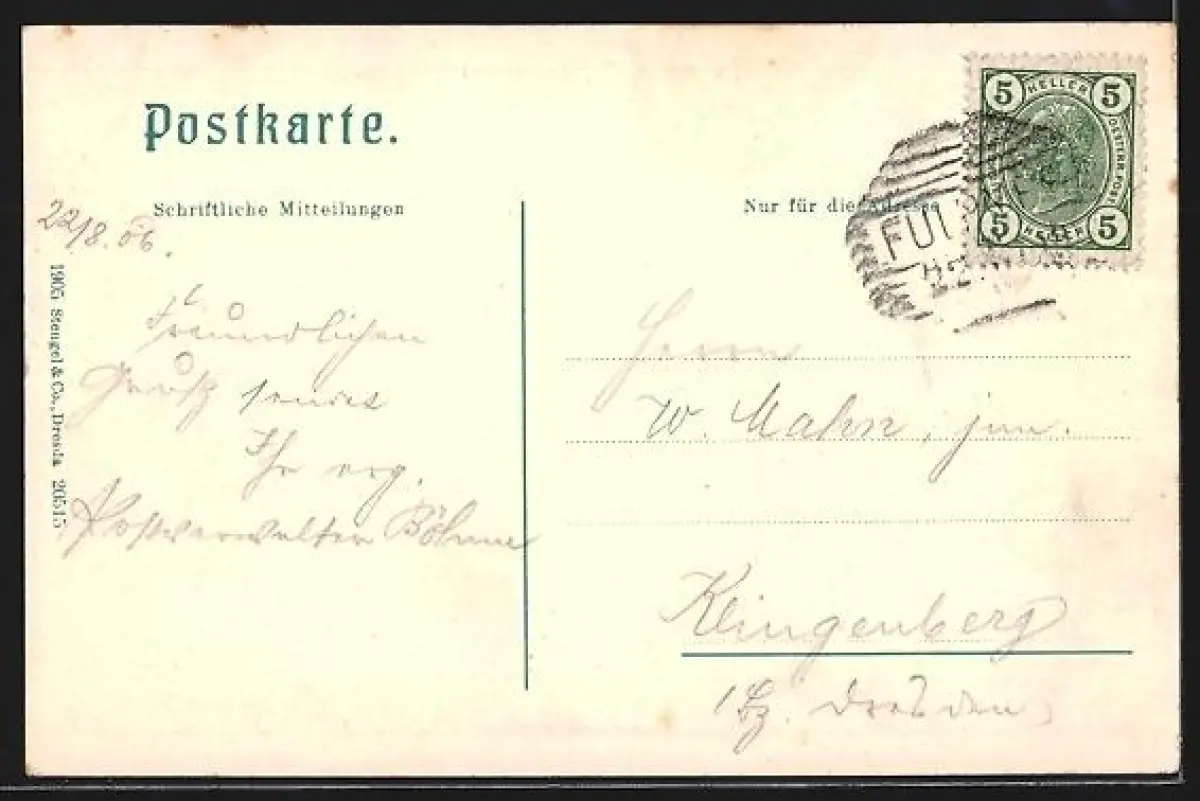 Postkarte.
Schriftliche Mitteilungen
Nur für die Adresse
5 HELLER 5
5 HELLER 5
FUL
22/8.06.
1905 Stengel & Co., Dresda 20515
Freundlichen
Gruß sendet
Ihr erg.
Postverwalter Böhme
Herrn
W. Mahn, jun.
Klingenberg
Bz. Dresden